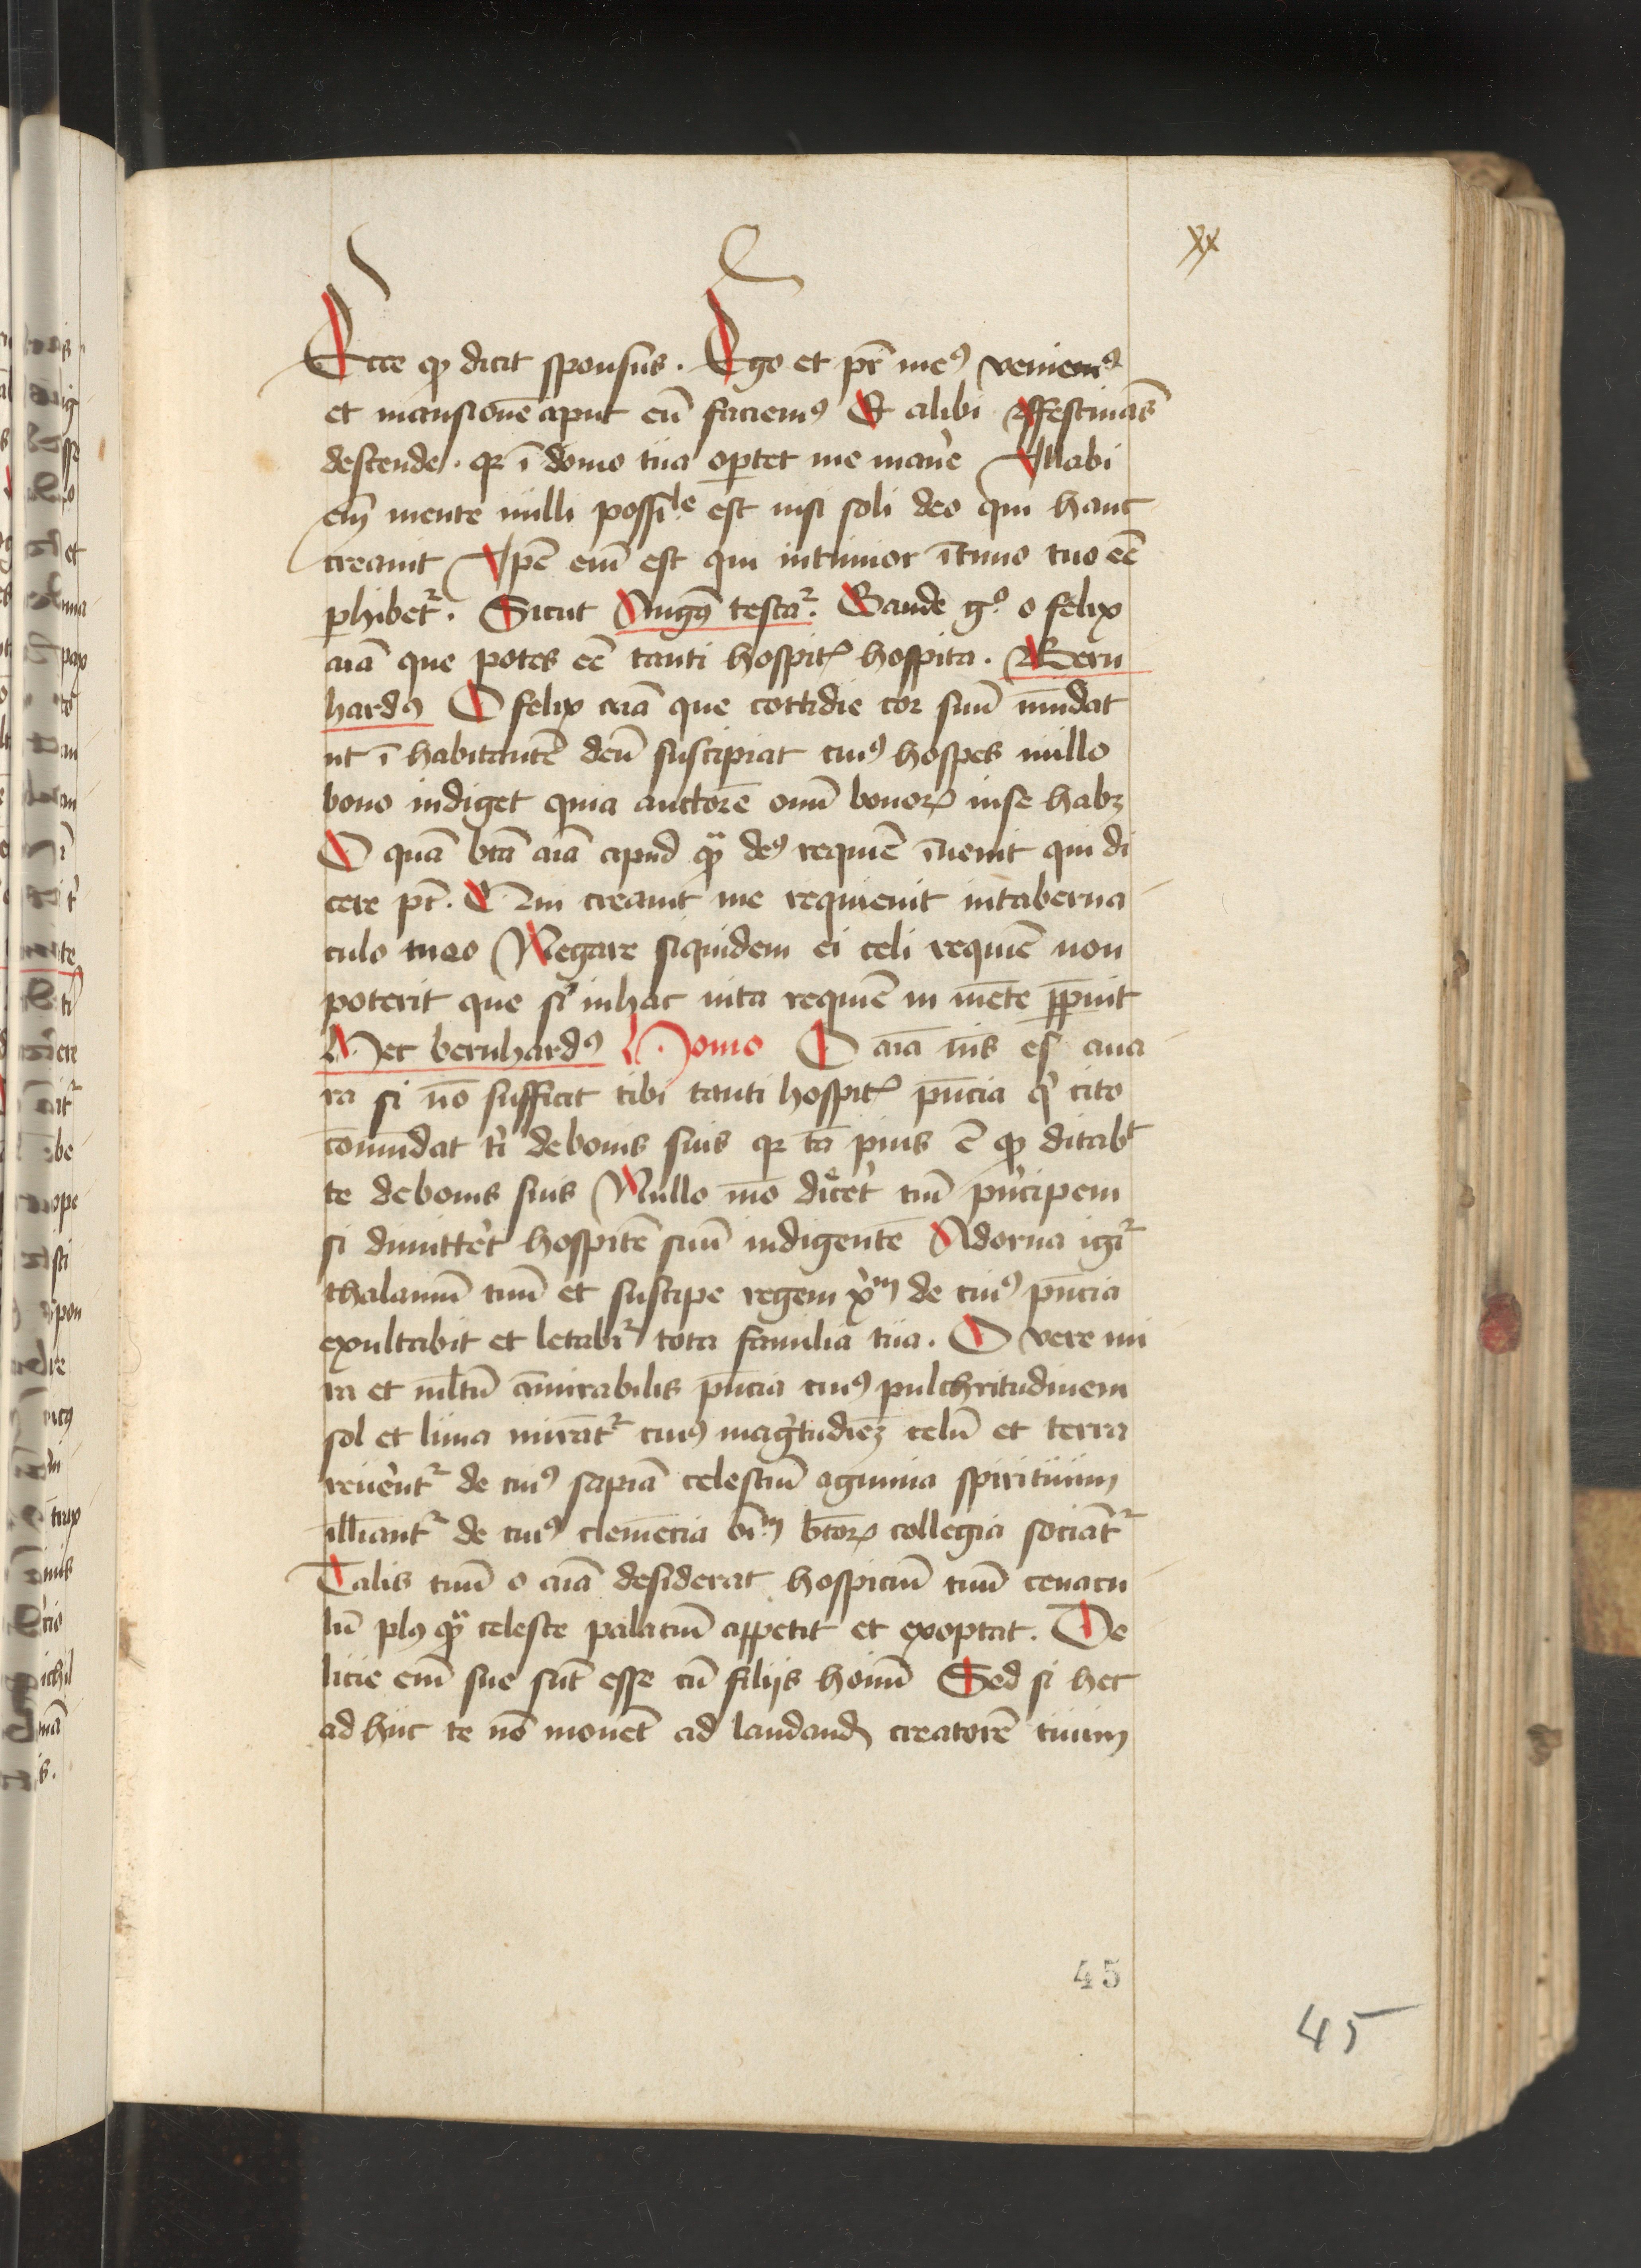 xx
Ecce qꝫ dicit sponsus . Ego et pr̄ meꝯ veniemꝯ
et mansionē aput eū faciemꝯ Et alibi ffestinās
descende . qr ī domo tua oꝑtet me manē Illabi
em̄ mente nulli possīle est nisi soli deo qui hanc
creauit Ipē em̄ est qui intimior ītimo tuo eē
ꝑhibet᷑ . Sicut Augꝯ testat᷑ . Gaude gͦ o felix
aīa que potes eē tanti hospitꝭ hospita . Bern
hardꝯ O felix aīa que cottidie cor suū mūdat
ut ī habitantē deū suscipiat cuiꝯ hospes nullo
bono indiget quia auctorē oīm bonoꝝ in se habꝫ
O quā btā aīa apud qͣ deꝯ requiē īuenit qui di
cere pt̄ . Qui creauit me requieuit in taberna
culo meo Negare siquidem ei celi requiē non
poterit que sͥ in hac uita requiē in mēte ꝑpauit
Hec bernhardꝯ Homo O aīa nīs es aua
ra si nō sufficit tibi tanti hospitꝭ pn̄cia qͥ cito
cōmūdat tͥ de bonis suis qr tā pius ē qꝫ ditabt
te de bonis suis Nullo mō dicēt tuū pͥncipem
si dimittēt hospitē suū indigentē Adorna igit᷑
thalamū tuū et suscipe regem xp̄m de cuiꝯ pn̄cia
exultabit et letabit᷑ tota familia tua . O vere mi
ra et mltū āmirabilis pn̄cia cuiꝯ pulchritudinem
sol et luna mirāt᷑ cuiꝯ magͥtudīeꝫ celū et terra
reuēnt᷑ de cuiꝯ sapīa celestiū agmina spirituum
illīant᷑ de cuiꝯ clemēcia oīm btōꝝ collegia sociāt᷑
Talis tuū o aīa desiderat hospiciū tuū cenacu
lū plꝯ qͣ celeste palaciū appetit et exoptat . De
licie em̄ sue sūt esse cū filijs hoīm Sed si hec
ad huc te nō mouēt ad laudandꝫ creatorē tuum
45
45